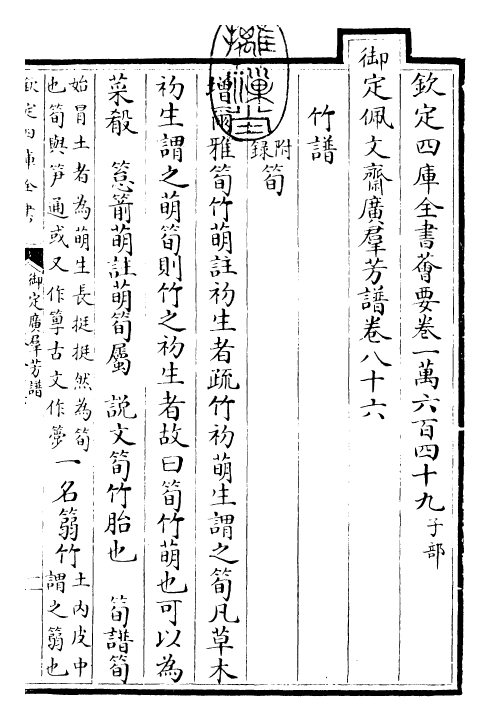 欽定四庫全書薈要卷一萬六百四十九子部
御定佩文齋廣羣芳譜卷八十六
竹譜
附錄筍
增爾雅筍竹萌註初生者疏竹初萌生謂之筍凡草木
初生謂之萌筍則竹之初生者故曰筍竹萌也可以為
菜殽 篙箭萌註萌筍屬 說文筍竹胎也 筍譜筍
始冒土者為萌生長挺挺然為筍
也筍與笋通或又作箰古文作
一名篛竹
土內皮中
謂之篛也
欽定四庫全書
御定廣羣芳譜
一
摛藻堂